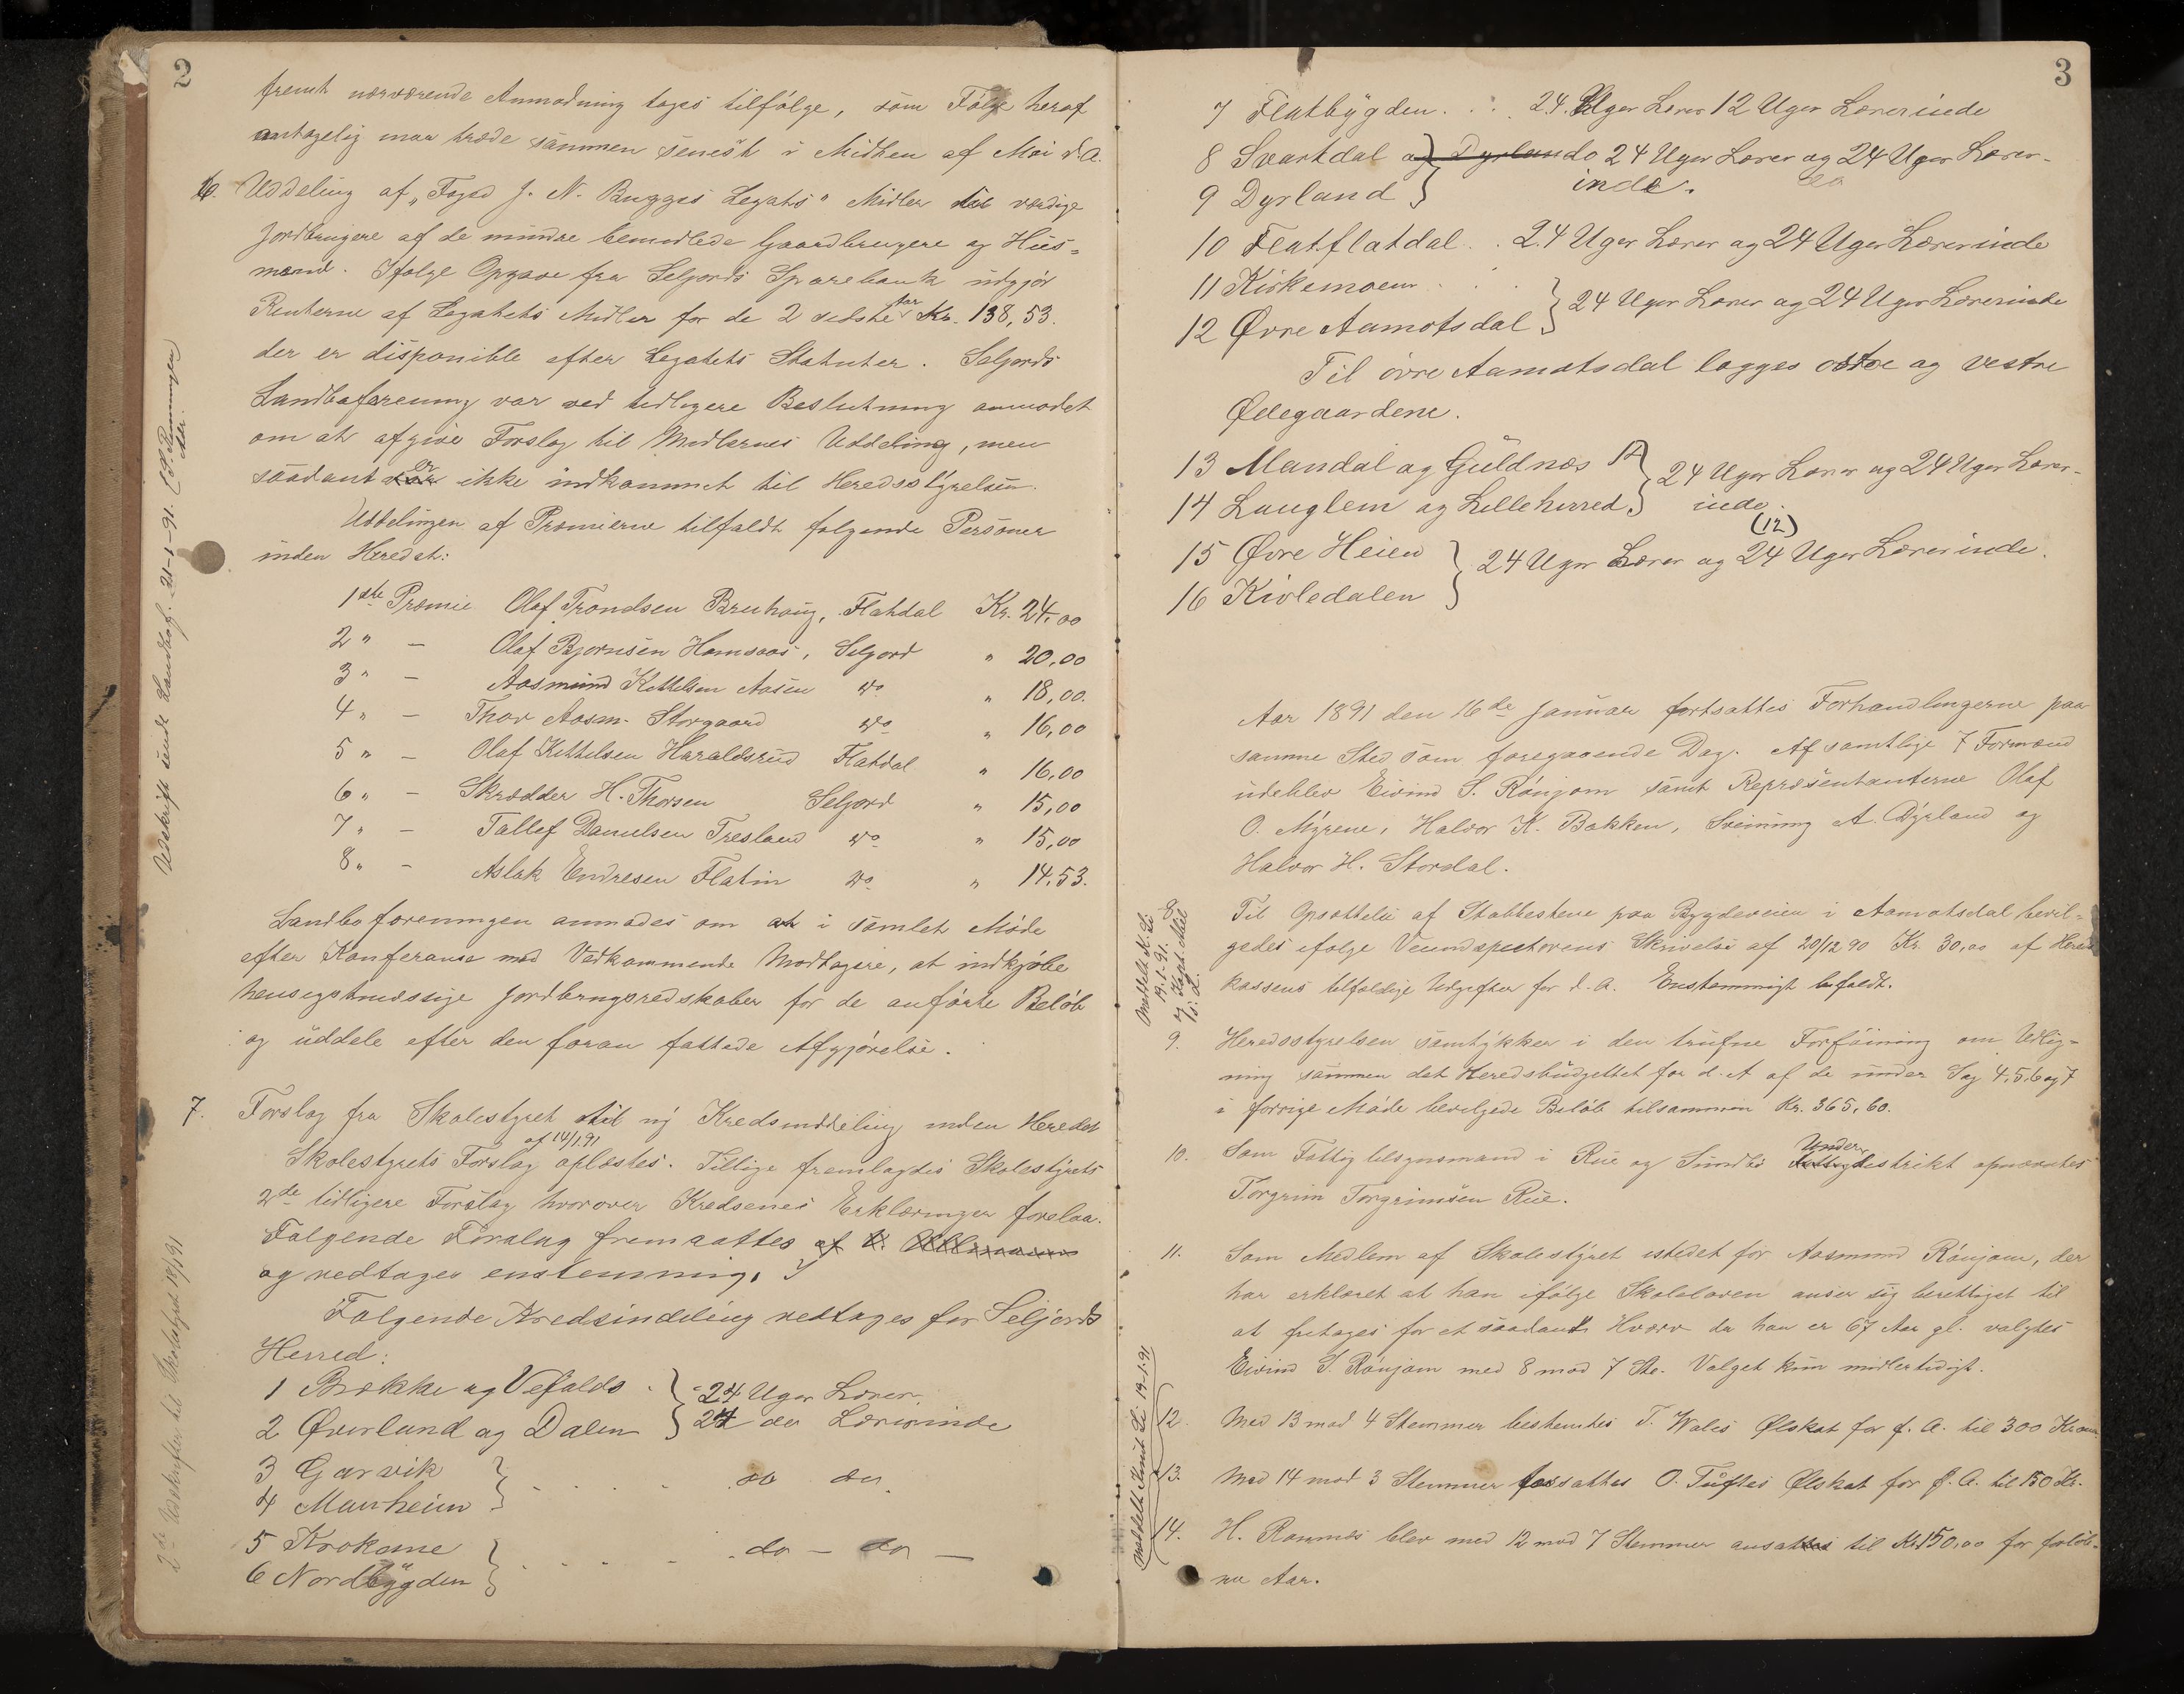 2
fremt nærværende Anmodning tages tilfølge, som Følge heraf
antagelig maa træde sammen senest i Midten af Mai d.A.
6. Uddeling af „Foged J. N. Bugges Legats" Midler til værdige
Jordbrugere af de mindre bemidlede Gaardbrugere og Hus-
mænd. Ifølge Opgave fra Seljords Sparebank udgjør
Renterne af Legatets Midler for de 2 sidste Aar Kr. 138,53.
der er disponible efter Legatets Statuter. Seljords
Landboforening var ved tidligere Beslutning anmodet
om at afgive Forslag til Midlernes Uddeling, men
saadant er ikke indkommet til Heredsstyrelsen.
Uddelingen af Præmierne tilfaldt følgende Personer
inden Heredet:
1ste Præmie Olaf Trondsen Bruhaug, Flatdal Kr. 24,00
2 " — Olaf Bjørnsen Homsaas, Seljord " 20,00
3 " — Aasmund Kittelsen Aasen do " 18,00.
4 " — Thor Aasm. Storgaard do " 16,00
5 " — Olaf Kittelsen Haraldsrud Flatdal " 16,00
6 " — Skrædder H. Thorsen Seljord " 15,00
7 " — Tallef Danielsen Tresland do " 15,00
8 " — Aslak Endresen Flatin do " 14,53.
Landboforeningen anmodes om at i samlet Møde
efter Konferanse med Vedkommende Modtagere, at indkjøbe
hensigtsmæssige Jordbrugsredskaber for de anførte Beløb
og uddele efter den foran fattede Afgjørelse.
7. Forslag fra Skolestyret til ny Kredsinddeling inden Heredet
af 14/1 91
Skolestyrets Forslag oplæstes. Tillige fremlagdes Skolestyrets
2de tidligere Forslag hvorover Kredsenes Erklæringer forelaa.
Følgende Forslag fremsattes
og vedtages enstemmig.
Følgende Kredsinddeling vedtages for Seljords
Herred:
1 Brække og Vefalds } 24 Uger Lærer
2 Øverland og Dalen } 24 do Lærerinde
3 Garvik } . . . . do do
4 Manheim
5 Krokane } . . . . do — do —
6 Nordbygden
Udskrift sendt Landbof. 21-1-91.
2de Udskrifter til Skolestyret 18/1 91
3
7 Flatbygden . . . 24 Uger Lærer 12 Uger Lærerinde
8 Svartdal og Dyrland } do 24 Uger Lærer og 24 Uger Lærer-
9 Dyrland } inde.
10 Flatflatdal . . 24 Uger Lærer og 24 Uger Lærerinde
11 Kirkemoen . . . } 24 Uger Lærer og 24 Uger Lærerinde
12 Øvre Aamotsdal
Til øvre Aamotsdal lægges østre og vestre
Ødegaardene.
13 Mandal og Guldnæs } 24 Uger Lærer og 24 Uger Lærer-
14 Lauglem og Lilleherred } inde.
(12)
15 Øvre Heien } 24 Uger Lærer og 24 Uger Lærerinde.
16 Kivledalen
Aar 1891 den 16de Januar fortsattes Forhandlingerne paa
samme Sted som foregaaende Dag. Af samtlige 7 Formænd
udeblev Eivind S. Rónjom samt Repræsentanterne Olaf
O. Myrene, Halvor K. Bakken, Sveinung A. Dyrland og
Halvor H. Stordal.
8 Til Opsættelse af Stabbestene paa Bygdeveien i Aamotsdal bevil-
gedes ifølge Veiinspektørens Skrivelse af 20/12 90 Kr. 30,00 af Hereds
kassens tilfældige Udgifter for d. A. Enstemmigt bifaldt.
9. Heredsstyrelsen samtykker i den trufne Forføining om Udlig-
ning sammen det Heredsbudgettet for d. A af de under Sag 4, 5, 6 og 7
i forrige Møde bevilgede Beløb tilsammen Kr. 365,60.
10. Som Fattigtilsynsmand i Rue og Sundbø Underdistrikt opnævntes
Torgrim Torgrimsen Rue.
11. Som Medlem af Skolestyret istedet for Aasmund Rónjom, der
har erklæret at han ifølge Skoleloven anser sig berettiget til
at fritages for et saadant Hværv da han er 67 Aar gl. valgtes
Eivind S. Rónjom med 8 mod 7 Ste. Valget kun midlertidigt.
12. Med 13 mod 4 Stemmer bestemtes T. Wales Ølskat for f. A. til 300 Kroner
13. Med 14 mod 3 Stemmer fassattes O. Tuftes Ølskat for f. A. til 150 Kr.
14. H. Ramnes blev med 12 mod 7 Stemmer ansat til Kr 150,00 for forløb-
ne Aar.
Meddelt K. Li
19-1-91.
Meddelt Knut Li 19-1-91